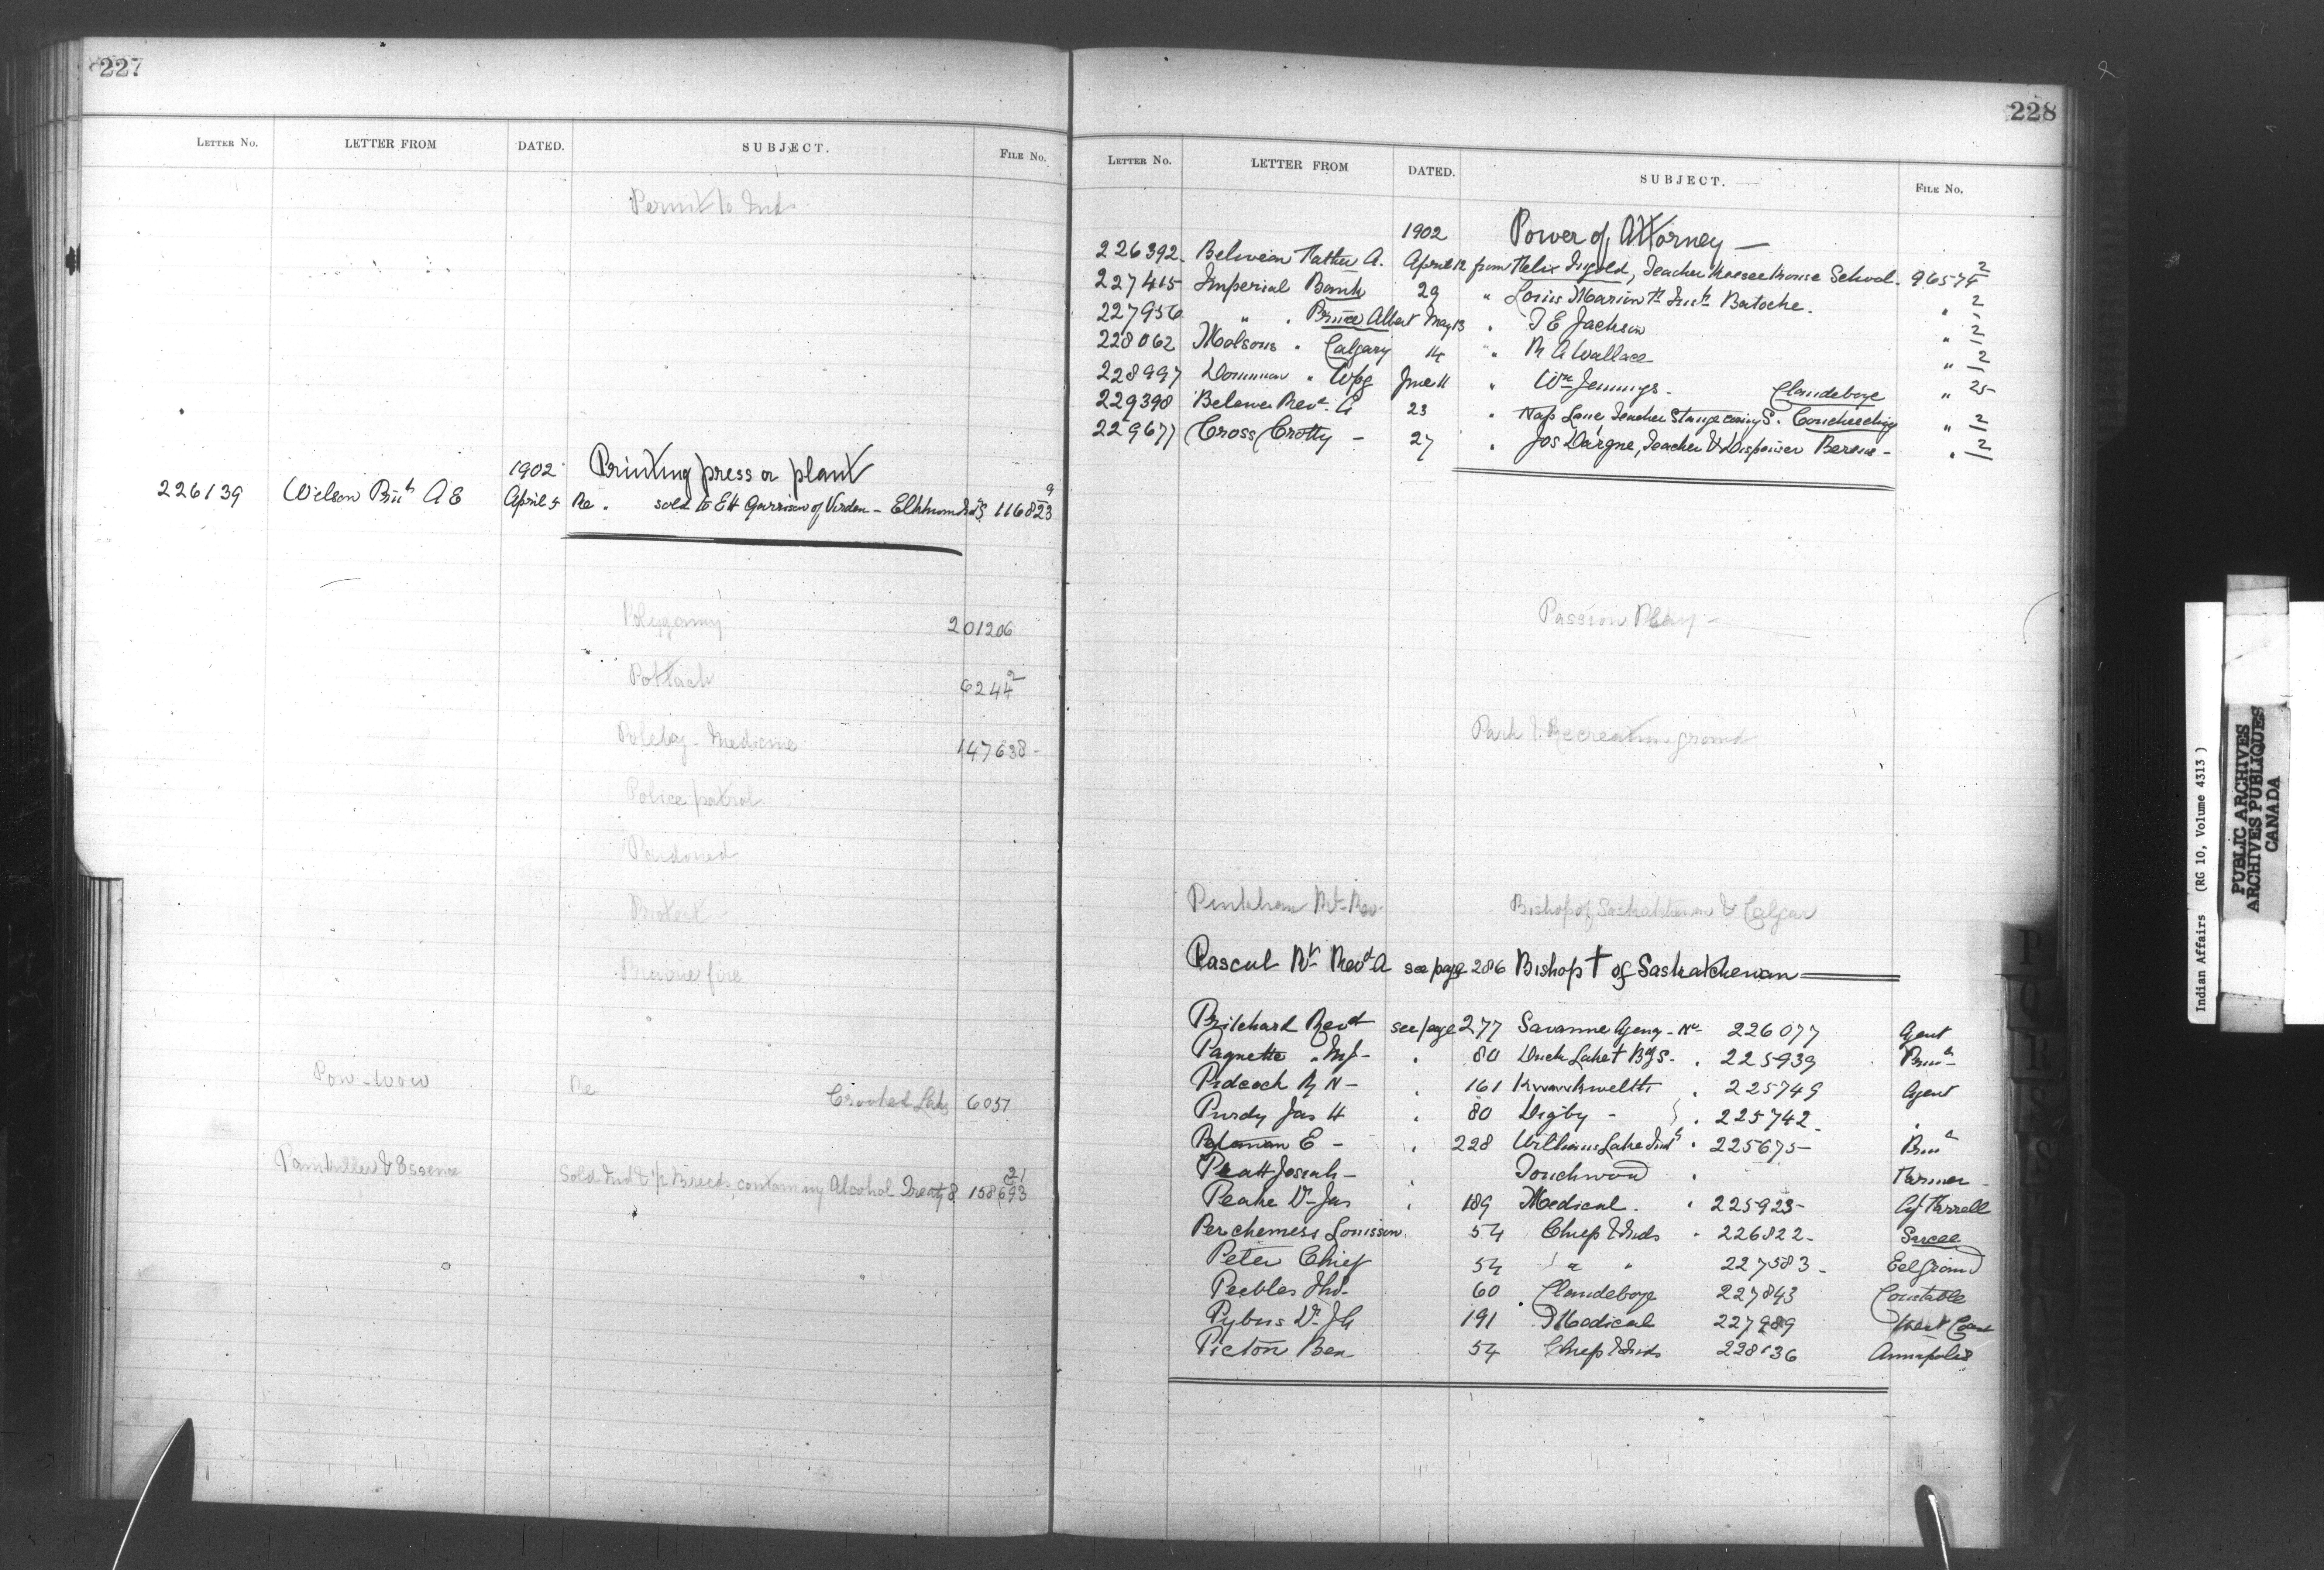 227
LETTER No. LETTER FROM DATED. SUBJECT. FILE No.
Permit to Inds
1902 Printing press or plant
226139 Wilson Prin A E April 5 Re . sold to E H Garrison of Virden - Elkhorn Ind S 116823 9
Polygamy 201206
Potlach 6244 2
Medicine 147638 -
Police patrol
Pardoned
Protest -
Prairie fire
Pow-wow Re Crooked Lake 6051
Painkiller & Essence Sold Ind & 1/2 Breeds containing Alcohol Treaty 8 158693 21
228
LETTER No. LETTER FROM DATED. SUBJECT. FILE No.
1902 Power of Attorney —
226392 Father A. April 12 from Felix Teacher School. 2
227415 Imperial Bank 29 " Louis Marion Batoche. " 2
227956 " . Prince Albert May 13 " J E Jackson " 2
228062 Molsons " Calgary 14 " R A Wallace " 2
228997 Dominion " Wpg June 11 " Wm Jennings - Clandeboye " 25
229390 Rev. A 23 " Nap Teacher " 2
229677 Cross Crotty - 27 " Jos Teacher & " 2
Passion Play -
Park & Recreation ground
Pinkham Rt Rev. Bishop of Saskatchewan & Calgar
Pascul Rt Revd A see page 286 Bishop † of Saskatchewan
Pritchard Revd see page 277 Savanne Agency - No 226077 Agent
Paquette " Duck Lake † Bdg S - . 225939 Prin
Pidcock R N - . 161 Kwawkwelth . 225749 Agent
Purdy Jas H . 80 Digby - . 225742 .
E - . 228 Williams Lake Ind . 225675 - Prin
Pratt Josiah - . Touchwood . Farmer -
Peake Dr Jas . 189 Medical . . 225923 -
Louison . 54 . Chiefs & Inds . 226822 -
Peter Chief 54 " " 227583 - Eelground
Peebles 60 Clandeboye 227843 Constable
Pybus Dr 191 Medical 227989 West Coast
Picton Ben 54 Chiefs & Inds 228136 Annapolis
Indian Affairs (RG 10, Volume 4313)
PUBLIC ARCHIVES
ARCHIVES PUBLIQUES
CANADA